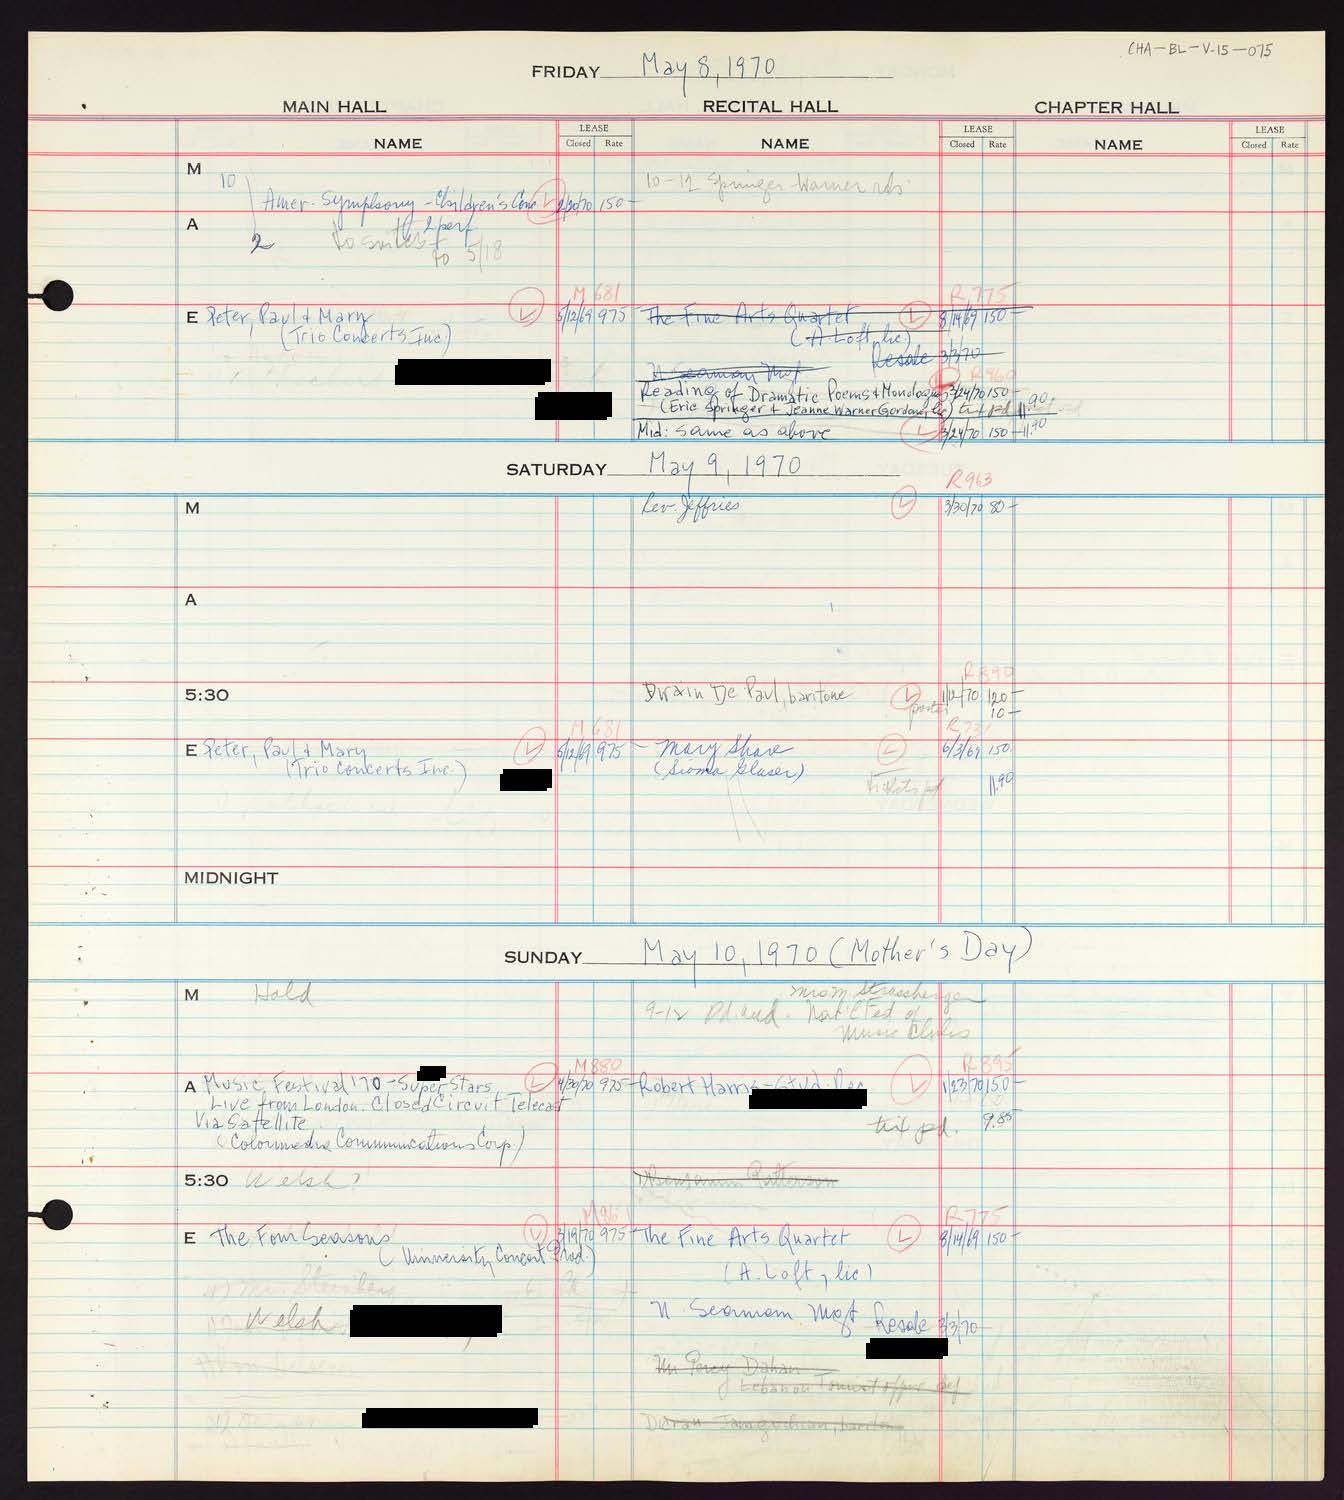 CHA-BL-V-15-075
FRIDAY May 8, 1970
MAIN HALL RECITAL HALL CHAPTER HALL
NAME LEASE Closed Rate NAME LEASE Closed Rate NAME LEASE Closed Rate
M
10
10-12 Springer-Warner
Amer. Symphony - Children's Conc 2/20/70 150-
A
2 perf
2
to 5/18
M 681 R 775
E Peter, Paul & Mary 5/12/69 975- The Fine Arts Quartet 8/14/69 150-
(Trio Concerts Inc.) (A. Loft, lic)
Resale 3/3/70
N Seaman Mgt
R 960
Reading of Dramatic Poems & Monologues 3/24/70 150-
(Eric Springer & Jeanne Warner Gordon, lic) tix pd 11.90
Mid: same as above 3/24/70 150- 11.90
SATURDAY May 9, 1970
R 963
M Rev. Jeffries 3/30/70 80-
A
R 890
5:30 Dwain De Paul, baritone 1/12/70 120-
poster 10-
M 681
E Peter, Paul & Mary 5/12/69 975- Mary Shave 6/3/69 150
(Trio Concerts Inc.) (Sioma Glaser)
tickets pd 11.90
MIDNIGHT
SUNDAY May 10, 1970 (Mother's Day)
M Hold
Strassberger
9-12 Nat'l Fed of
Music Clubs
M 880 R 895
A Music Festival '70 - Super Stars 4/30/70 975- Robert Harris - Stud. Rec 1/23/70 150-
Live from London. Closed Circuit Telecast
Via Satellite tix pd. 9.85
(Colormedia Communications Corp.)
5:30 Welsh? Benjamin Patterson
R 775
E The Four Seasons 3/19/70 975- The Fine Arts Quartet 8/14/69 150-
(University Concert Prod.)
(A. Loft, lic)
Welsh N. Seaman Mgt Resale 3/3/70
Mr Percy Dahan
Lebanon Tourist